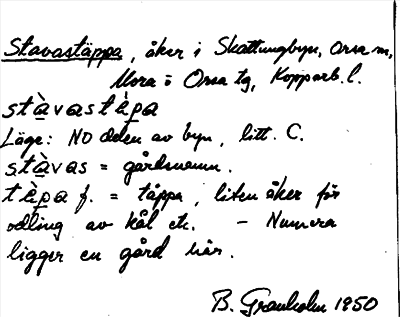 Stavastäppa, åker i Skattungbyn, Orsa sn,
Mora o Orsa tg, Kopparb. l.
stàvastèpa
Läge: NO delen av byn, litt. C.
stàvas = gårdsnamn.
tèpa f. = täppa, liten åker för
odling av kål etc. – Numera
ligger en gård här.
B. Granholm 1950